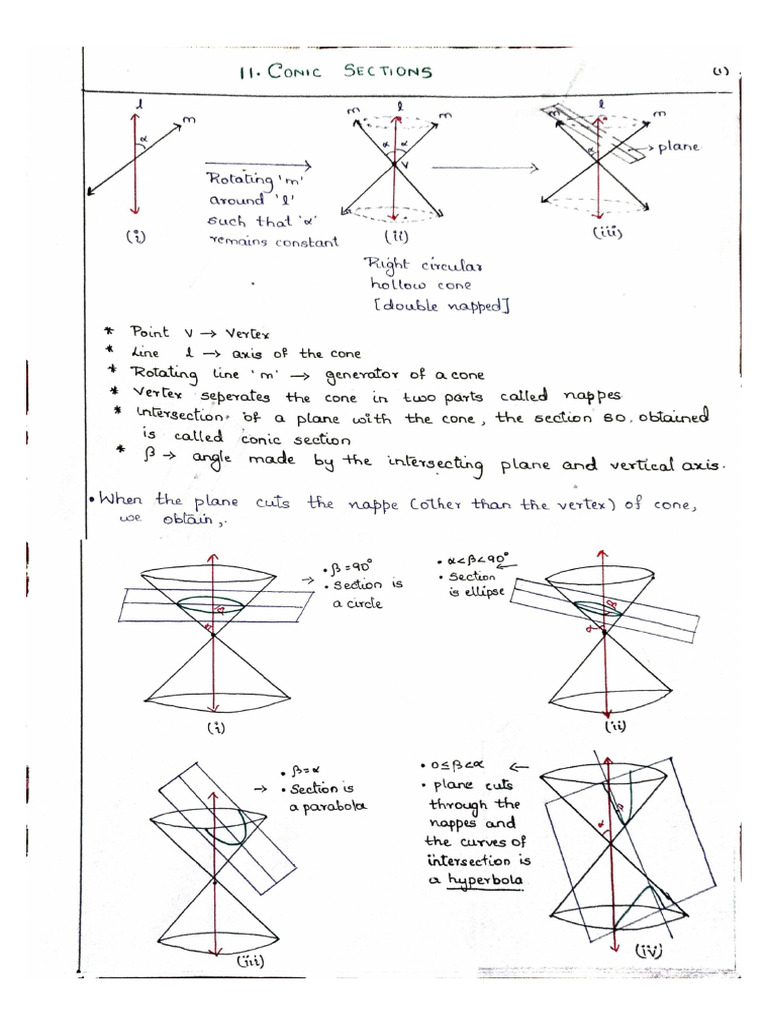 11. CONIC SECTIONS
(1)
l
m
α
(i)
Rotating 'm'
around 'l'
such that 'α'
remains constant
m
l
m
α
α
V
(ii)
Right circular
hollow cone
[double napped]
m
l
m
α
plane
(iii)
* Point V → Vertex
* Line l → axis of the cone
* Rotating line 'm' → generator of a cone
* Vertex seperates the cone in two parts called nappes
* Intersection of a plane with the cone, the section so obtained
is called conic section
* β → angle made by the intersecting plane and vertical axis.
• When the plane cuts the nappe (other than the vertex) of cone,
we obtain,
→ • β=90°
• Section is
a circle
(i)
• α<β<90° ←
• Section
is ellipse
α
β
(ii)
• β=α
→ • Section is
a parabola
(iii)
• 0≤β<α ←
• plane cuts
through the
nappes and
the curves of
intersection is
a hyperbola
α
β
(iv)